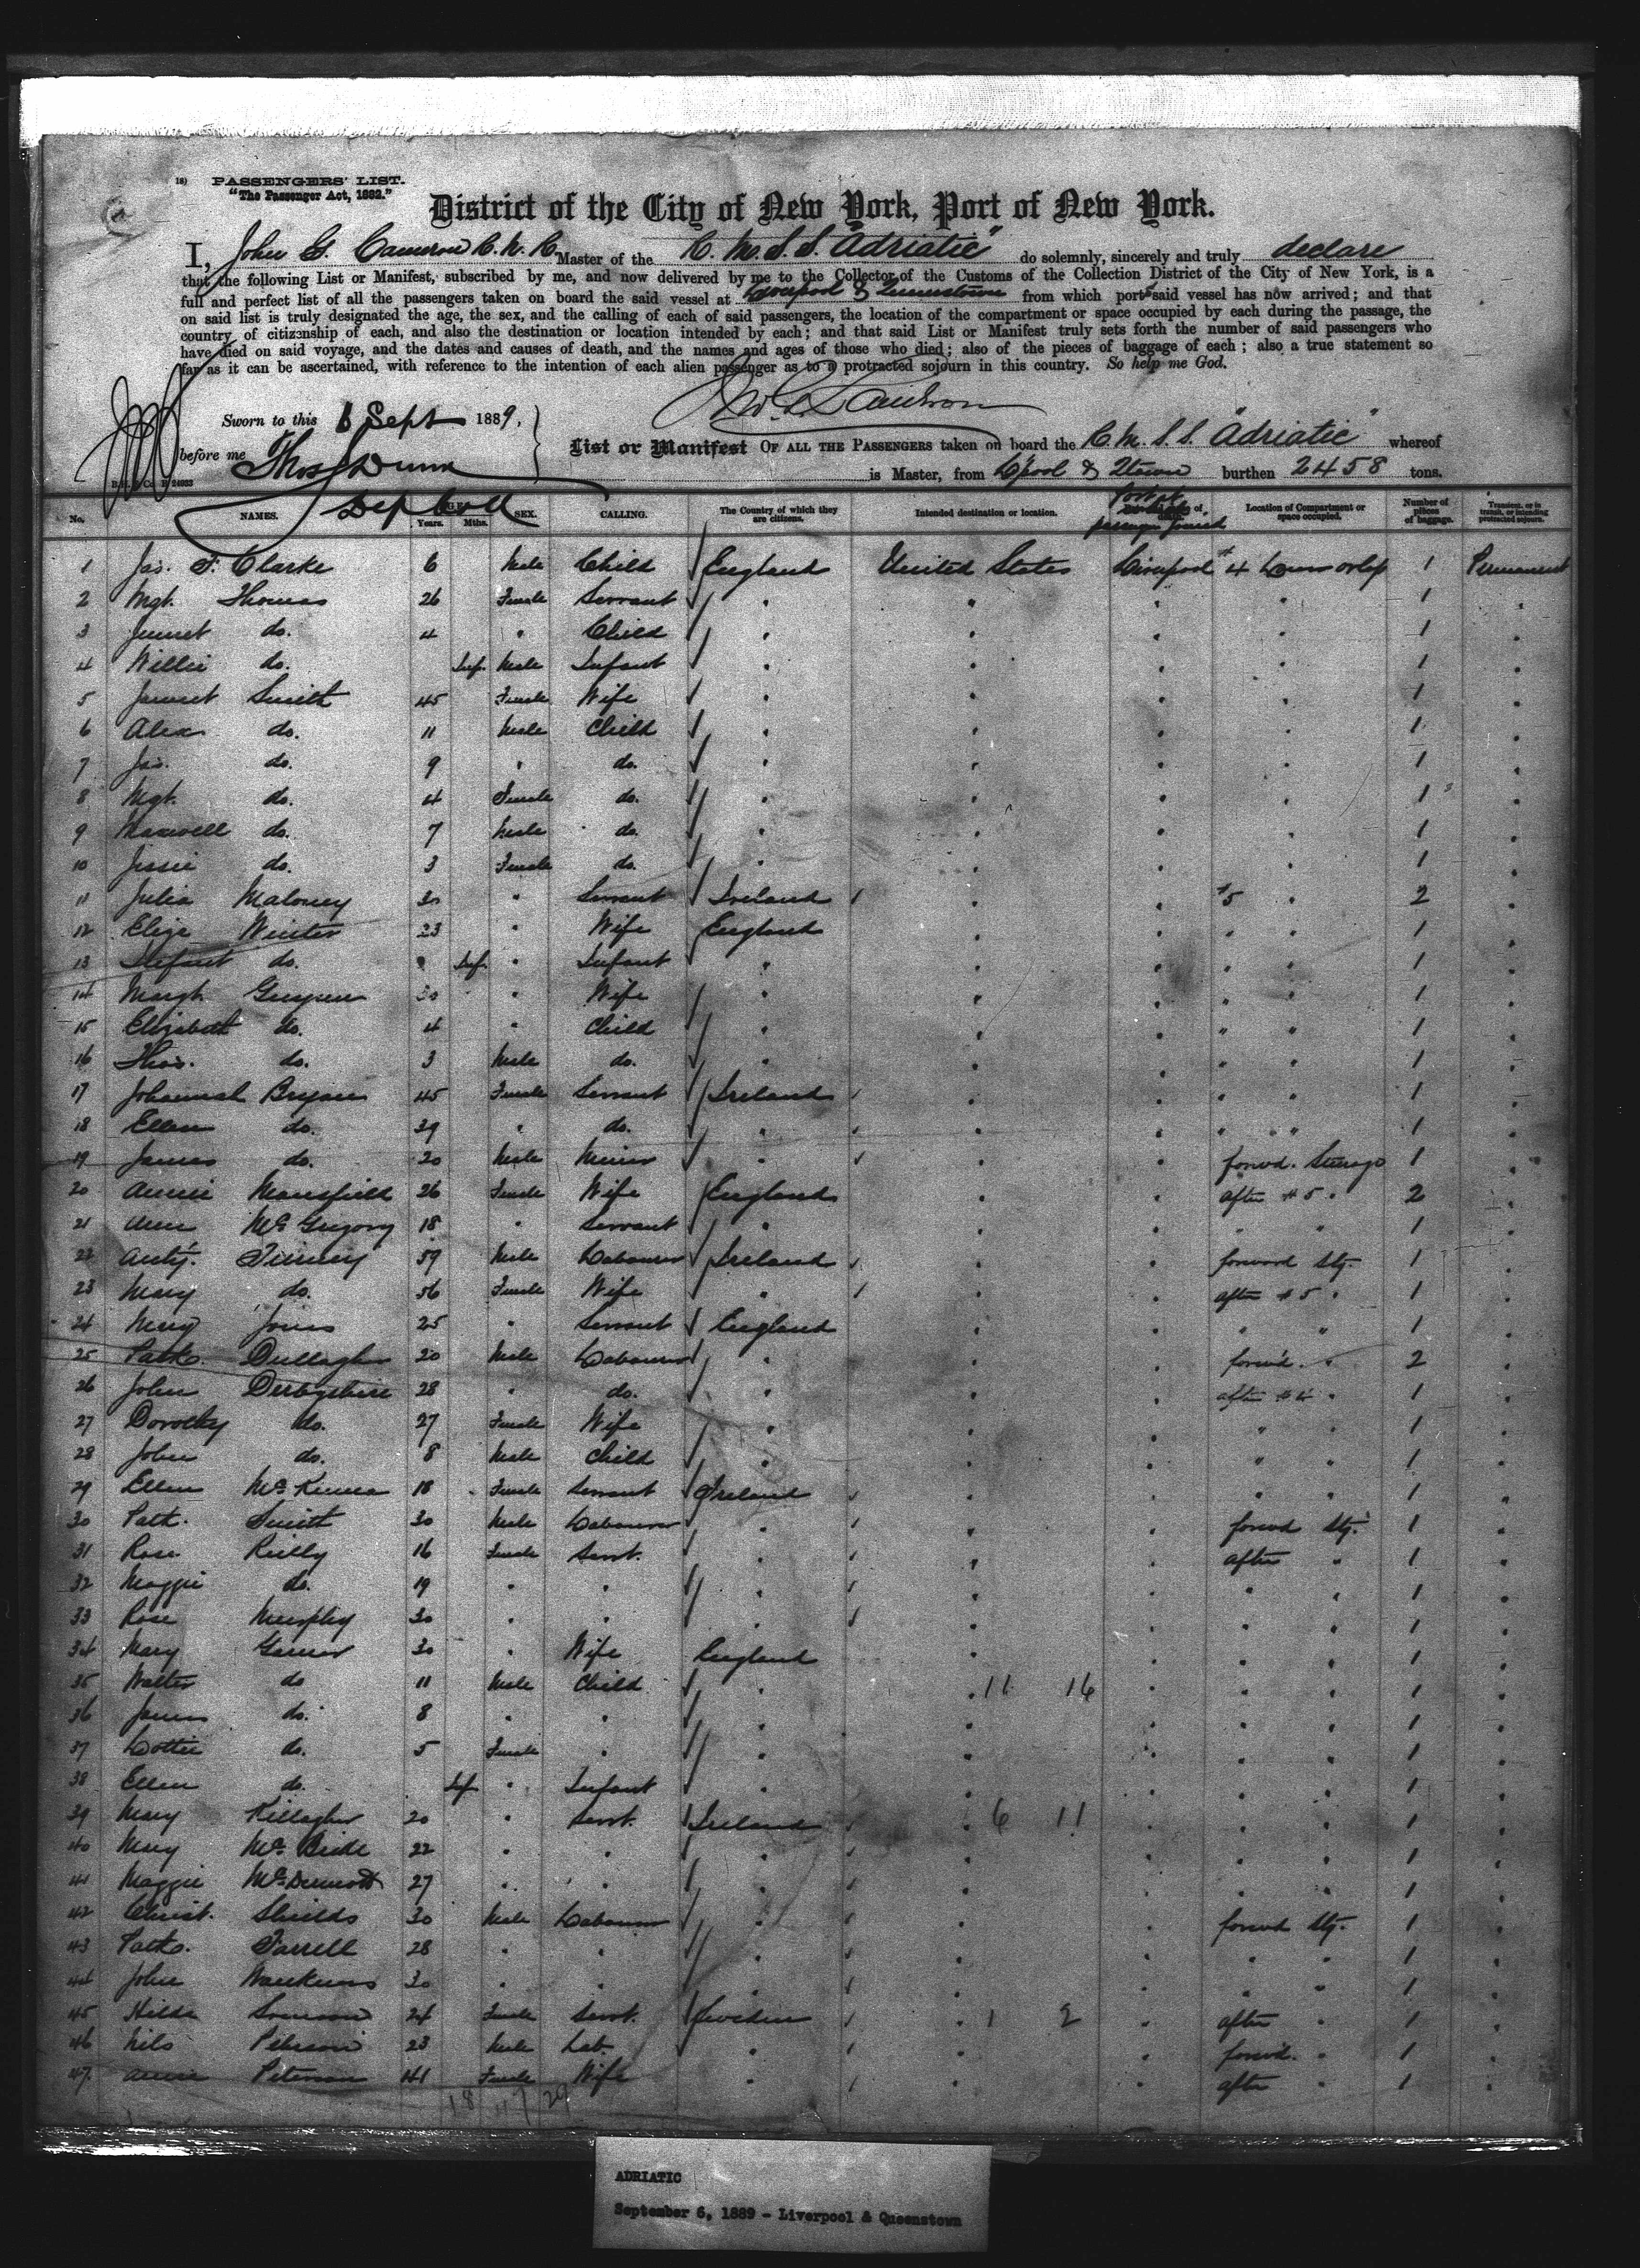 18) PASSENGERS' LIST.
"The Passenger Act, 1882."
District of the City of New York, Port of New York.
I, John G. Cameron R.N.R. Master of the C. M. S. S. "Adriatic" do solemnly, sincerely and truly declare
that the following List or Manifest, subscribed by me, and now delivered by me to the Collector of the Customs of the Collection District of the City of New York, is a
full and perfect list of all the passengers taken on board the said vessel at Liverpool & Queenstown from which ports said vessel has now arrived; and that
on said list is truly designated the age, the sex, and the calling of each of said passengers, the location of the compartment or space occupied by each during the passage, the
country of citizenship of each, and also the destination or location intended by each; and that said List or Manifest truly sets forth the number of said passengers who
have died on said voyage, and the dates and causes of death, and the names and ages of those who died; also of the pieces of baggage of each; also a true statement so
far as it can be ascertained, with reference to the intention of each alien passenger as to a protracted sojourn in this country. So help me God.
Jno. G. Cameron
Sworn to this 6 Sept 1889,
before me Thos Dunn
Dep Coll
List or Manifest OF ALL THE PASSENGERS taken on board the C. M. S. S. "Adriatic" whereof
is Master, from L'pool & Q.town burthen 2458 tons.
No. NAMES. AGE Years. Mths. SEX. CALLING. The Country of which they are citizens. Intended destination or location. Port at which passage joined Location of Compartment or space occupied. Number of pieces of baggage. Transient, or in transit, or intending protracted sojourn.
1 Jas. F. Clarke 6 Male Child England United States Liverpool #4 Lower orlop 1 Permanent
2 Mgt. Thomas 26 Female Servant " " " " 1 "
3 Jennet do. 4 " Child " " " " 1 "
4 Willie do. Inf. Male Infant " " " " 1 "
5 Jannet Smith 45 Female Wife " " " " 1 "
6 Alex do. 11 Male Child " " " " 1 "
7 Jas. do. 9 " do. " " " " 1 "
8 Mgt. do. 4 Female do. " " " " 1 "
9 Maxwell do. 7 Male do. " " " " 1 "
10 Jessie do. 3 Female do. " " " " 1 "
11 Julia Maloney 30 " Servant Ireland " " #5 " 2 "
12 Eliza Winter 23 " Wife England " " " " 1 "
13 Infant do. Inf. " Infant " " " " " 1 "
14 Margt. 30 " Wife " " " " " 1 "
15 Elizabeth do. 4 " Child " " " " " 1 "
16 Thos. do. 3 Male do. " " " " " 1 "
17 Johannah Bryan 45 Female Servant Ireland " " " " 1 "
18 Ellen do. 39 " do. " " " " " 1 "
19 James do. 20 Male Miner " " " forwd. Steerage 1 "
20 Annie Mansfield 26 Female Wife England " " after #5 " 2 "
21 Ann McGregory 18 " Servant " " " " " 1 "
22 Anty. 59 Male Labourer Ireland " " forward Stg. 1 "
23 Mary do. 56 Female Wife " " " after #5 " 1 "
24 Mary Jones 25 " Servant England " " " " 1 "
25 Patk. Dullaghan 20 Male Labourer " " " forwd. " 2 "
26 John Derbyshire 28 " do. " " " after #4 " 1 "
27 Dorothy do. 27 Female Wife " " " " " 1 "
28 John do. 8 Male Child " " " " " 1 "
29 Ellen McKenna 18 Female Servant Ireland " " " " 1 "
30 Patk. Smith 30 Male Labourer " " " forwd Stg. 1 "
31 Rose Reilly 16 Female Servt. " " " after " 1 "
32 Maggie do. 19 " " " " " " " 1 "
33 Rose Murphy 30 " " " " " " " 1 "
34 Mary Garner 30 " Wife England " " " " 1 "
35 Walter do 11 Male Child " " 11 16 " " " 1 "
36 James do. 8 " " " " " " " 1 "
37 Lottie do. 5 Female " " " " " " 1 "
38 Ellen do. Inf " Infant " " " " " 1 "
39 Mary Killagher 20 " Servt. Ireland " 6 11 " " " 1 "
40 Mary McBride 22 " " " " " " " 1 "
41 Maggie McDermott 27 " " " " " " " 1 "
42 Christ. Shields 30 Male Labourer " " " forwd Stg. 1 "
43 Patk. Farrell 28 " " " " " " " 1 "
44 John 30 " " " " " " " 1 "
45 Hilda 24 Female Servt. Sweden " 1 2 " after " 1 "
46 Nils Peterson 23 Male Lab. " " " forwd. " 1 "
47 Annie Peterson 41 Female Wife " " " after " 1 "
18 47 29
ADRIATIC
September 6, 1889 - Liverpool & Queenstown